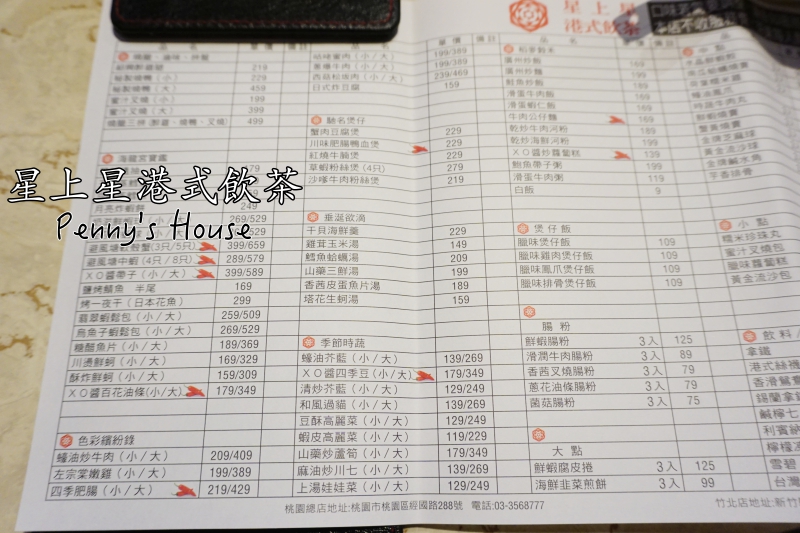 星上星
港式飲茶
單價 價目
品名 單價 價目
燒鴨、滷味、拼盤
219
秘製燒鴨(小) 229
秘製燒鴨(大) 459
蜜汁叉燒(小) 199
蜜汁叉燒(大) 399
499
199/389
199/389
239/469
日式炸豆腐 159
海龍宮寶鑑
249
269/529
避風塘軟殼蟹(3只/5只) 399/659
避風塘中蝦(4只/8只) 289/579
XO醬帶子(小/大) 399/589
鹽烤鯖魚 半尾 169
烤一夜干(日本花魚) 299
翡翠蝦鬆包(小/大) 259/509
烏魚子蝦鬆包(小/大) 269/529
糖醋魚片(小/大) 189/369
川燙鮮蚵(小/大) 169/329
酥炸鮮蚵(小/大) 159/309
XO醬百花油條(小/大) 179/349
色彩繽紛錄
蠔油炒牛肉(小/大) 209/409
左宗棠嫩雞(小/大) 199/389
四季肥腸(小/大) 219/429
馳名煲仔
蟹肉豆腐煲 229
川味肥腸鴨血煲 229
紅燒牛腩煲 229
草蝦粉絲煲(4只) 279
沙嗲牛肉粉絲煲 219
垂涎欲滴
干貝海鮮羹 229
雞茸玉米湯 149
鱈魚蛤蠣湯 209
山藥三鮮湯 199
香茜皮蛋魚片湯 189
塔花生蚵湯 159
季節時蔬
蠔油芥藍(小/大) 139/269
XO醬四季豆(小/大) 179/349
清炒芥藍(小/大) 129/249
和風過貓(小/大) 139/269
豆酥高麗菜(小/大) 129/249
蝦皮高麗菜(小/大) 119/229
山藥炒蘆筍(小/大) 179/349
麻油炒川七(小/大) 139/269
上湯娃娃菜(小/大) 129/249
稻麥數米
廣州炒飯 169
廣州炒麵 199
鮭魚炒飯 169
滑蛋牛肉飯 169
滑蛋蝦仁飯 189
牛肉公仔麵 169
乾炒牛肉河粉 189
乾炒海鮮河粉 189
XO醬炒蘿蔔糕 139
鮑魚帶子粥 199
滑蛋牛肉粥 119
白飯 9
煲仔飯
臘味煲仔飯 109
臘味雞肉煲仔飯 109
臘味鳳爪煲仔飯 109
臘味排骨煲仔飯 109
腸粉
鮮蝦腸粉 3入 125
滑潤牛肉腸粉 3入 89
香茜叉燒腸粉 3入 79
蔥花油條腸粉 3入 79
菌菇腸粉 3入 75
大點
鮮蝦腐皮捲 3入 125
海鮮韭菜煎餅 3入 99
中點
小點
糯米珍珠丸
蜜汁叉燒包
臘味蘿蔔糕
黃金流沙包
飲料
拿鐵
港式絲襪
香滑鴛鴦
錫蘭拿鐵
鹹檸七
利賓納
雪碧
台灣
桃園總店地址:桃園市桃園區經國路288號 電話:03-3568777
竹北店地址:新竹
星上星港式飲茶
Penny's House